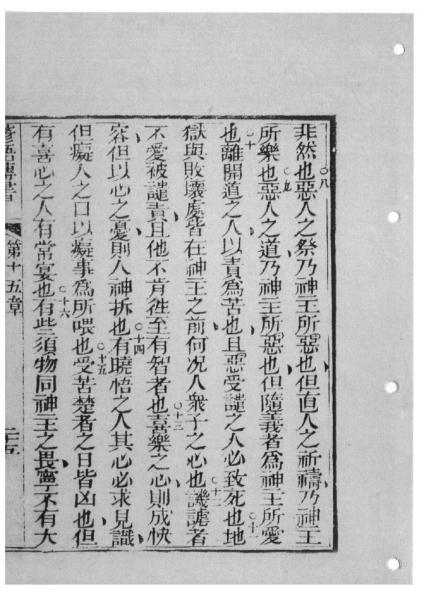 非然也○八惡人之祭乃神王所惡也但直人之祈禱乃神王
所樂也○九惡人之道乃神王所惡也但隨義者為神王所愛
也○十離開道之人以責為苦也且惡受譴之人必致死也○十一地
獄與敗壞處皆在神王之前何況人衆子之心也○十二譏謔者
不愛被譴責且他不肯徃至有智者也○十三喜樂之心則成快
容但以心之憂則人神拆也○十四有曉悟之人其心必求見識
但癡人之口以癡事為所喂也○十五受苦楚者之日皆凶也但
有喜心之人有常宴也○十六有些須物同神王之畏寧不有大
第十五章